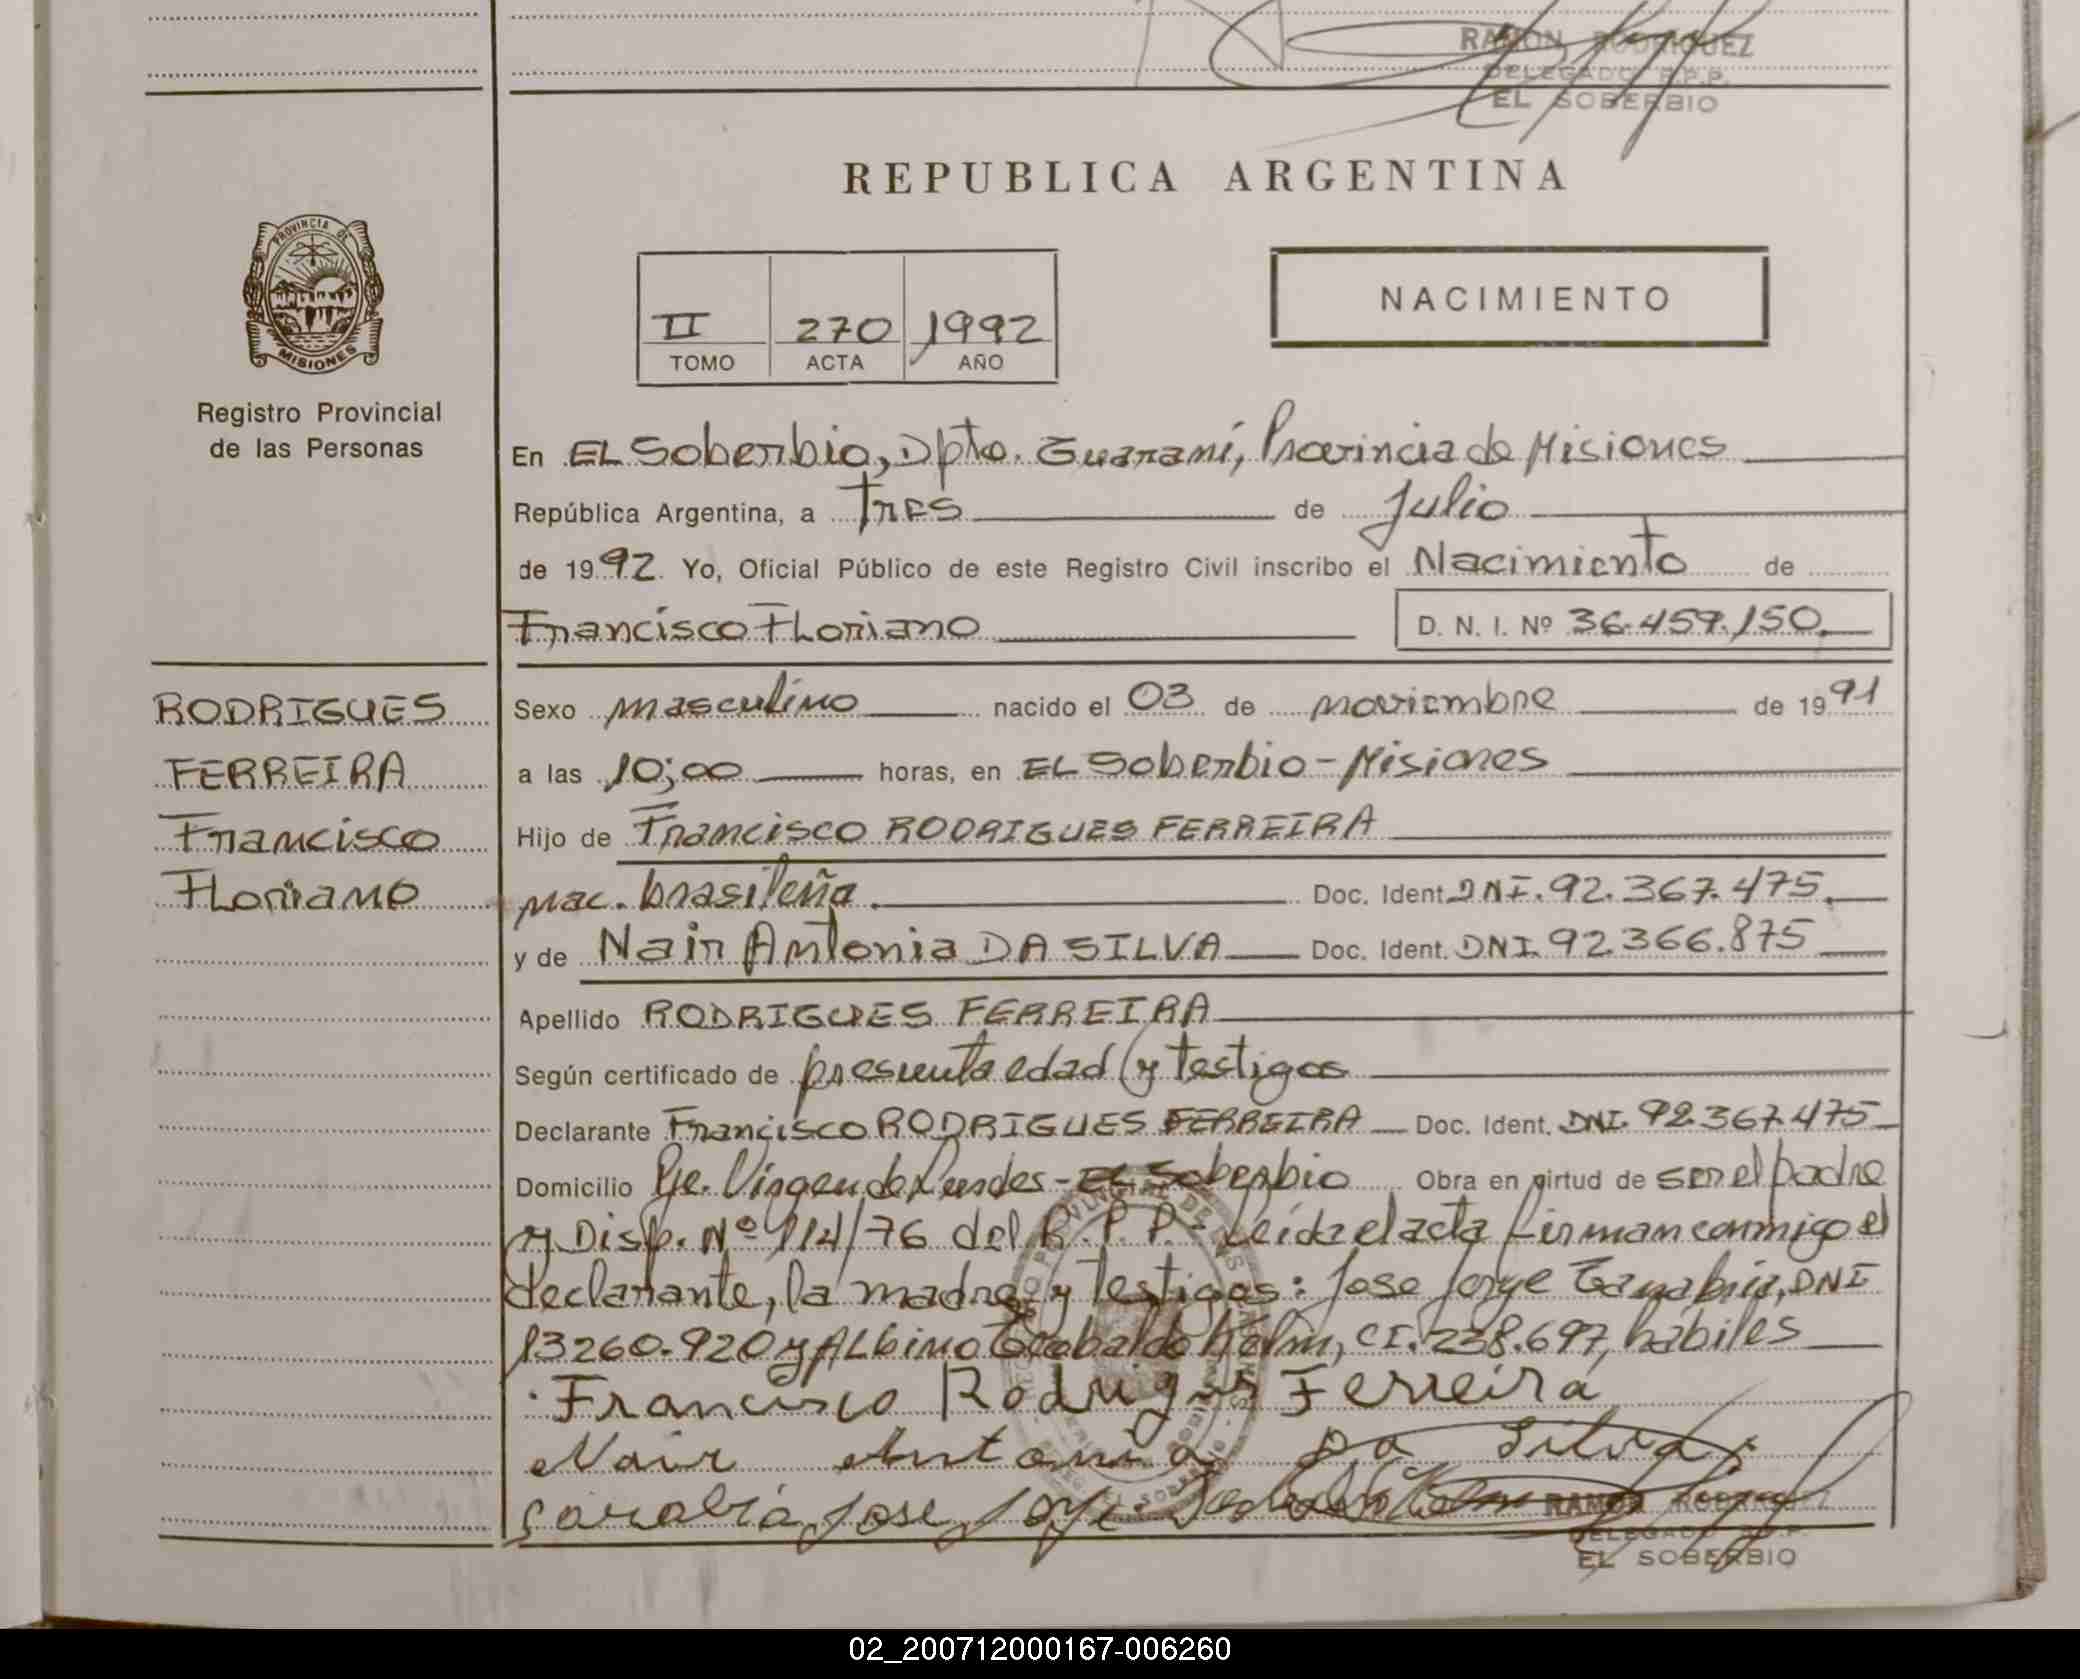 RAMON RODRIGUEZ
DELEGADO R.P.P.
EL SOBERBIO
REPUBLICA ARGENTINA
PROVINCIA DE
MISIONES
Registro Provincial
de las Personas
II 270 1992
TOMO ACTA AÑO
NACIMIENTO
En EL Soberbio, Dpto. Guaraní, Provincia de Misiones
República Argentina, a Tres de Julio
de 1992. Yo, Oficial Público de este Registro Civil inscribo el Nacimiento de
Francisco Floriano D. N. I. Nº 36.459.150
RODRIGUES
FERREIRA
Francisco
Floriano
Sexo masculino nacido el 03 de noviembre de 1991
a las 10;00 horas, en EL Soberbio - Misiones
Hijo de Francisco RODRIGUES FERREIRA
nac. brasileña. Doc. Ident. DNI. 92.367.475.
y de Nair Antonia DA SILVA Doc. Ident. DNI. 92.366.875
Apellido RODRIGUES FERREIRA
Según certificado de presunta edad y testigos
Declarante Francisco RODRIGUES FERREIRA Doc. Ident. DNI. 92.367.475
Domicilio Pje. Virgen de Lurdes - EL Soberbio Obra en virtud de ser el padre
y Disp. Nº 114/76 del R.P.P.- Leída el acta firman conmigo el
declarante, la madre y testigos: Jose Jorge DNI
13260.920 y Albino CI. 238.697, hábiles
Francisco Rodrigues Ferreira
Nair Antonia Da Silva
Jose Jorge
RAMON RODRIGUEZ
DELEGADO R.P.P.
EL SOBERBIO
02_200712000167-006260